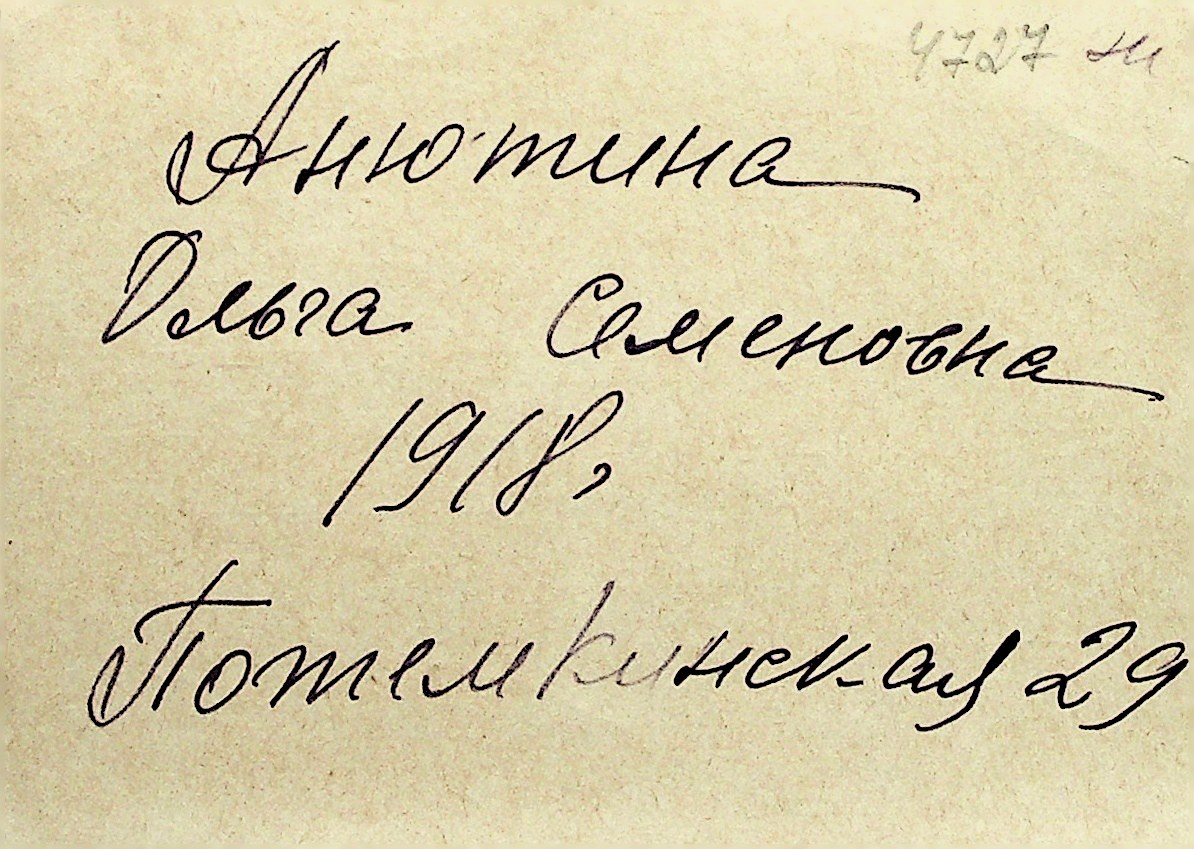 4727 ш
Анютина
Ольга Семеновна
1918,
Потемкинская 29